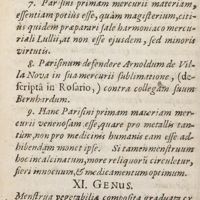 7. Parisini primam mercurii materiam,
essentiam potiùs esse, quàm magisterium, citiùs
quidem præparari sale harmoniaco mercu-
riali Lullii, at non esse ejusdem, sed minoris
virtutis.
8. Parisinum defendere Arnoldum de Vil-
la Nova in sua mercurii sublimatione, (de-
scripta in Rosario,) contra collegam suum
Bernhardum.
9. Hanc Parisini primam materiam mer-
curii venenosam esse, quare pro metallis tan-
tum, non pro medicinis humanis eam esse ad-
hibendam monet ipse. Si tamen menstruum
hoc incalcinatum, more reliquorū circuletur,
fieri innocuum, & medicamentum optimum.
XI. GENUS.
Menstrua vegetabilia composita graduata ex